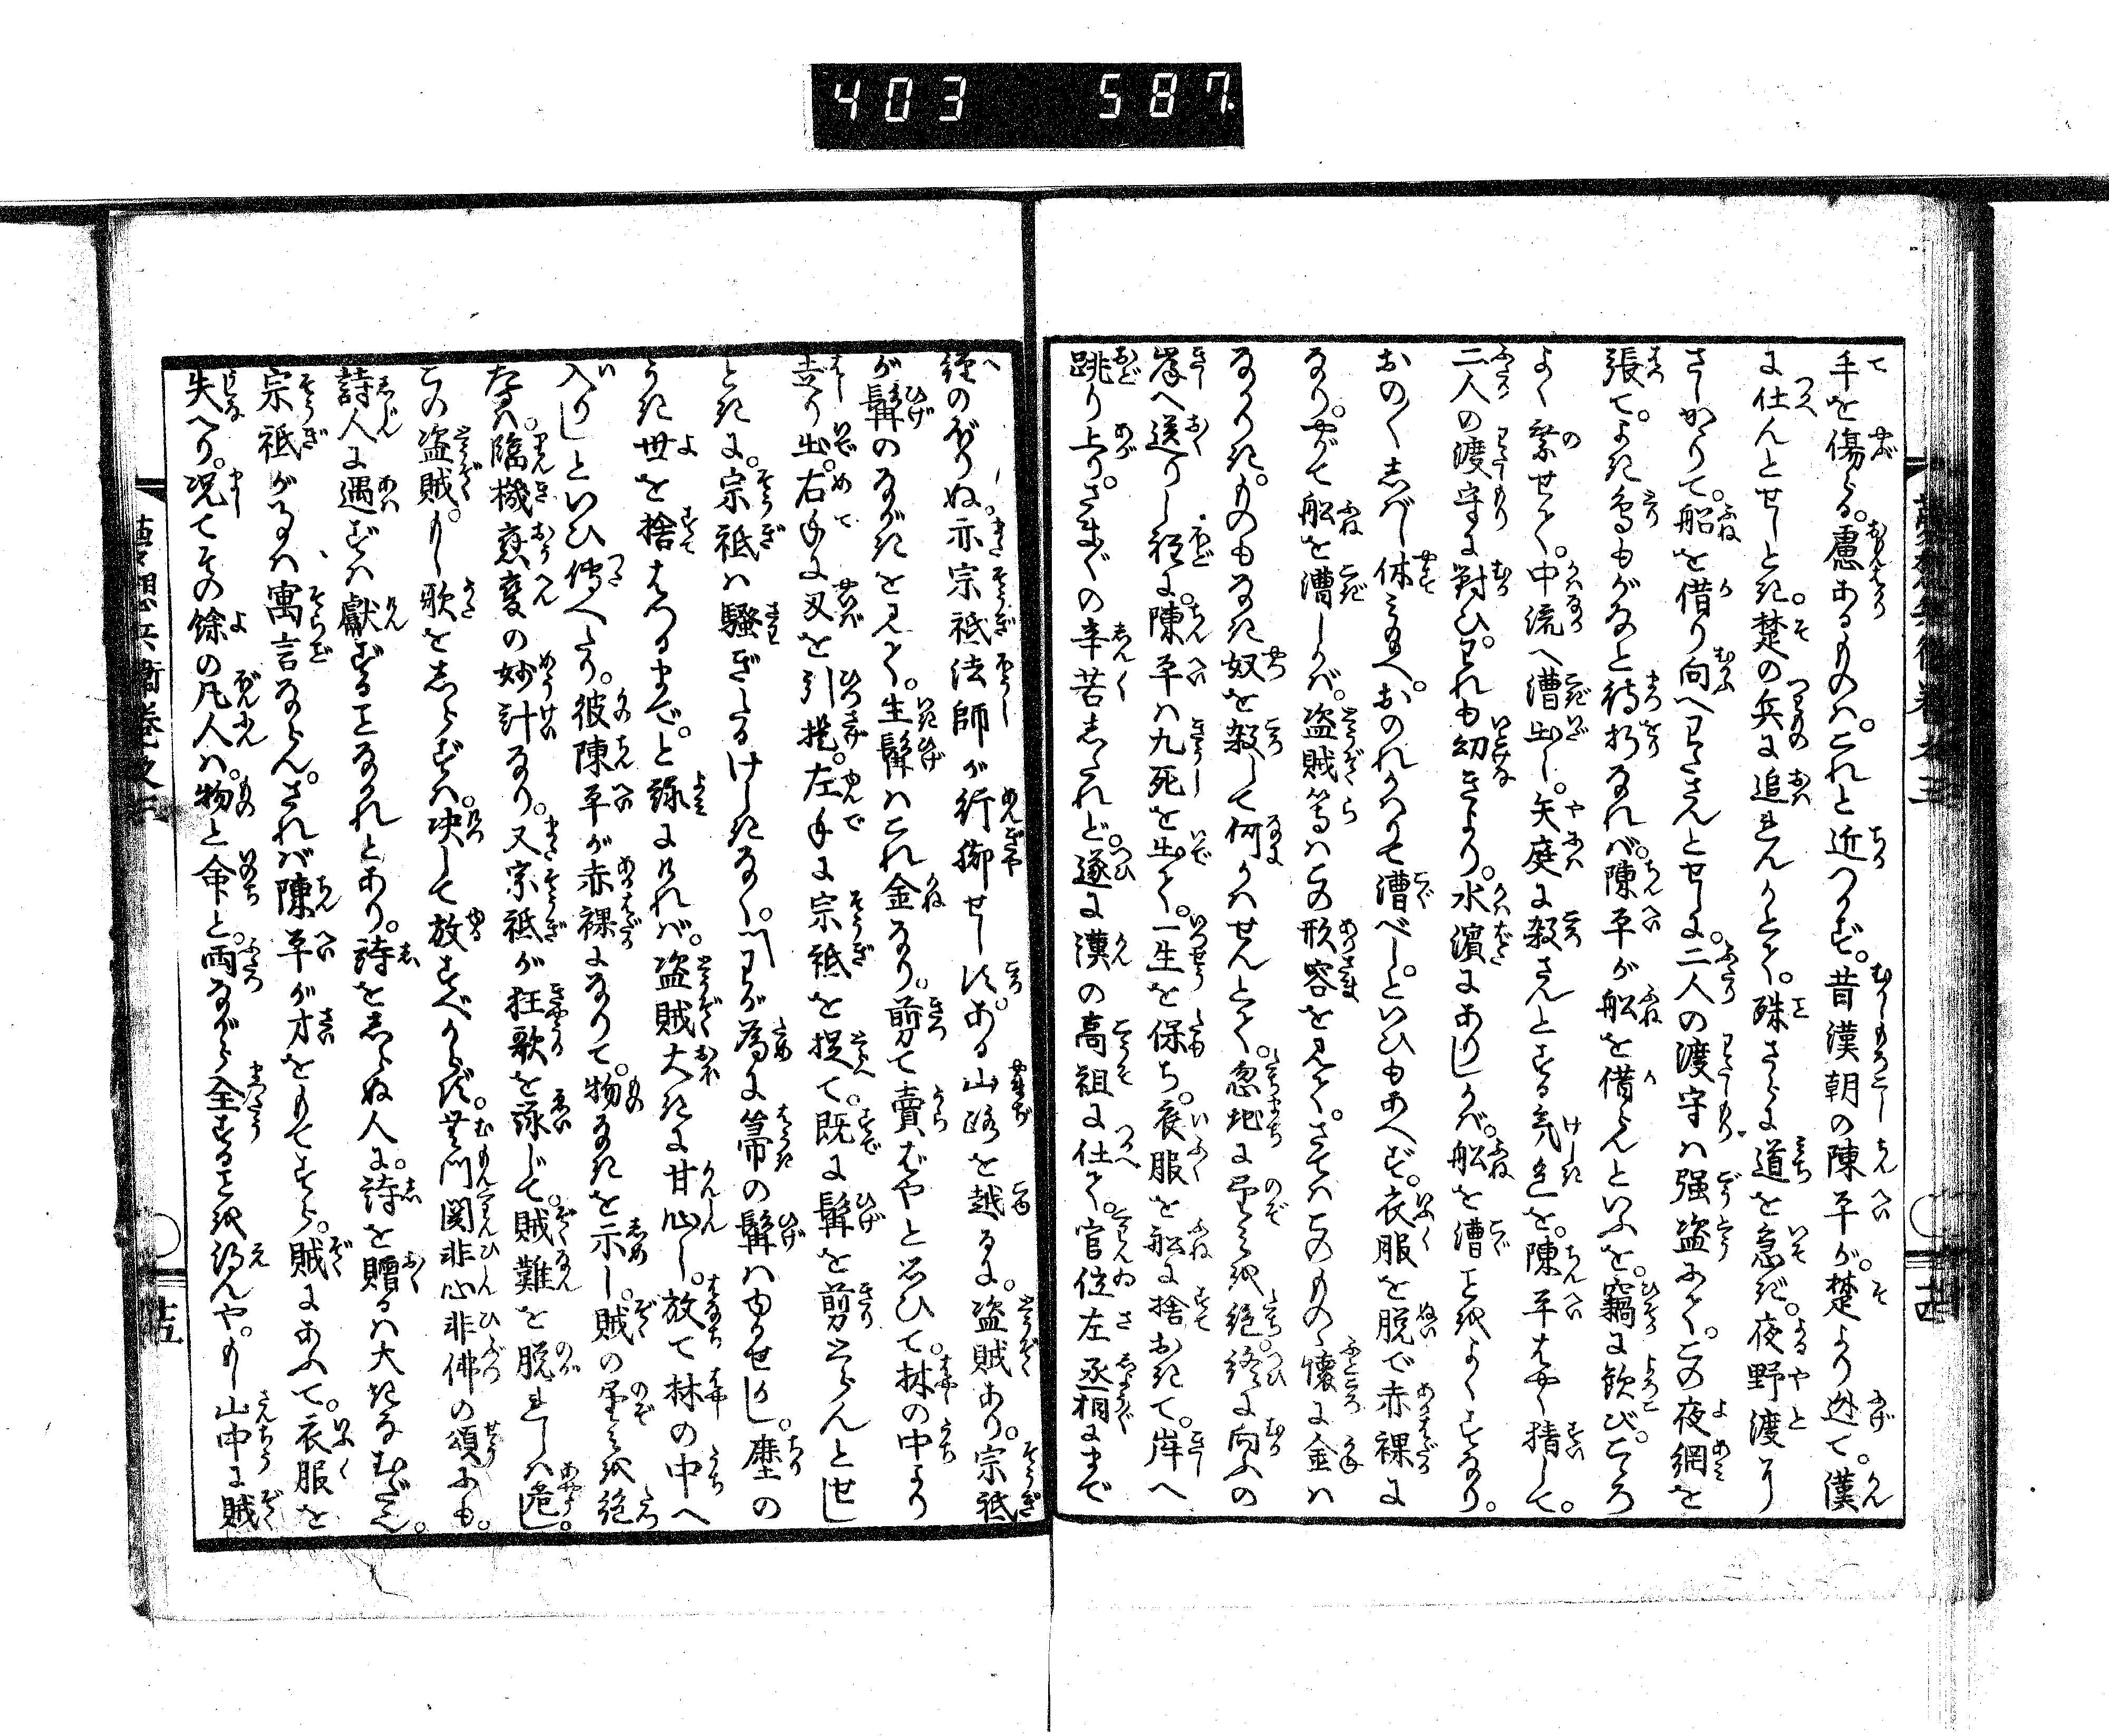 403 587.
手を傷る。慮あるものは。これと近つかず。昔漢朝の陳平が。楚より迯て。漢
に仕んとせしとき。楚の兵に追れんかとて。殊さらに道を急ぎ。夜野渡りに
さしかゝりて。船を借り向へわたさんとせしに。二人の渡守は强盗にて。この夜網を
張て。よき鳥もがなと待折なれば。陳平が船を借らんといふを。竊に歓び。こゝろ
よく乗せて。中流へ漕出し。矢庭に殺さんとする氣色を。陳平はやく猜して。
二人の渡守に對ひ。われも幼きより。水濱にありしかば。船を漕ことをよくすなり。
おの〳〵しばし休みたまへ。おのれかはりて漕べし。といひもあへず。衣服を脱で赤裸に
なり。やがて船を漕しかば。盗賊等はこの形容を見て。さてはこのものゝ懐に金は
なかりき。ものもなき奴を殺して何かはせんとて。忽地に望を絶。終に向ふの
岸へ送りし程に。陳平は九死を出て。一生を保ち。衣服を船に捨おきて。岸へ
跳り上り。さま〴〵の辛苦したれど。遂に漢の高祖に仕て。官位左丞相にまで
經のぼりぬ。亦宗祇法師が行脚せし比。ある山路を越るに。盗賊あり。宗祇
が髯のながきを見て。生髯はこれ金なり。剪て賣ばやと思ひて。林の中より
走り出。右手に刃を引提。左手に宗祇を捉て。既に髯を剪とらんとせし
ときに。宗祇は騒ぎたるけしきなく。わが為に箒の髯はゆるせかし。塵の
うき世を捨はつるまで。と詠ければ。盗賊大きに甘心し。放て林の中へ
入りしといひ傳へたり。彼陳平が赤裸になりて。物なきを示し。賊の望を絶
たるは。臨機應變の妙計なり。又宗祇が狂歌を詠じて。賊難を脱れしは危し。
この盗賊。もし歌をしらずは。决して放すべからず。無門関非心非佛の頌にも。
詩人に遇ずは獻ずることなかれとあり。詩をしらぬ人に。詩を贈るは大きなむだ也。
宗祇が事は寓言ならん。されば陳平が才をもてすら。賊にあふて。衣服を
失へり。况てその餘の凡人は。物と命と。両ながら全することを得んや。もし山中に賊